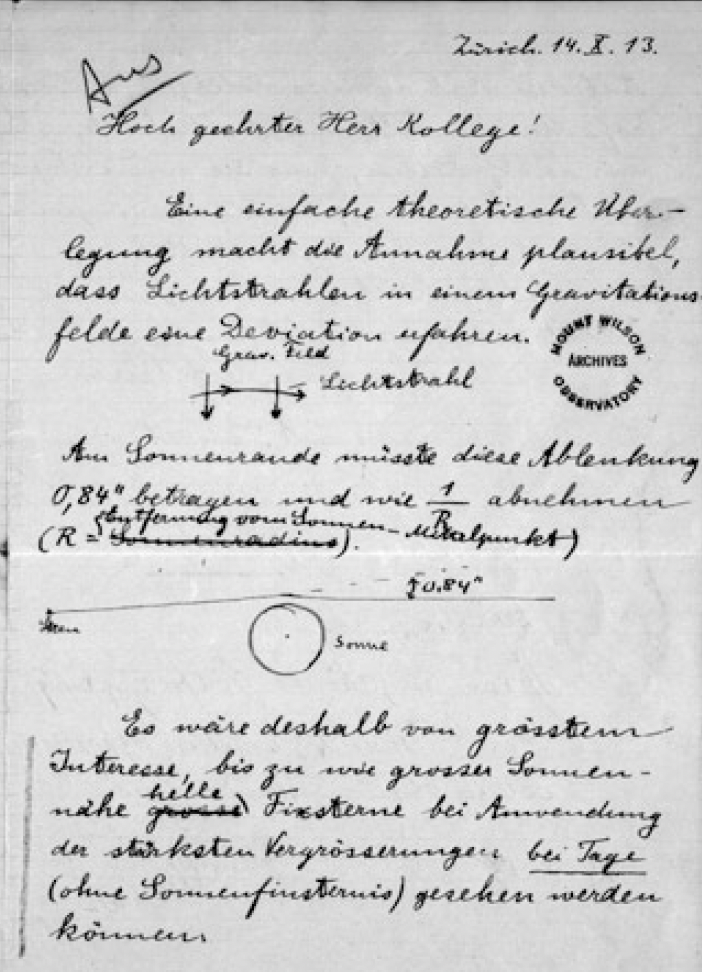 Zürich. 14. X. 13.
Hoch geehrter Herr Kollege!
Eine einfache theoretische Über-
legung macht die Annahme plausibel,
dass Lichtstrahlen in einem Gravitations-
felde eine Deviation erfahren.
Grav. Feld
Lichtstrahl
MOUNT WILSON
ARCHIVES
OBSERVATORY
Am Sonnenrande müsste diese Ablenkung
0,84" betragen und wie 1/R abnehmen
(R = Sonnenradius). Entfernung vom Sonnen-Mittelpunkt)
0.84"
Stern
Sonne
Es wäre deshalb von grösstem
Interesse, bis zu wie grosser Sonnen-
nähe grosse helle Fixsterne bei Anwendung
der stärksten Vergrösserungen bei Tage
(ohne Sonnenfinsternis) gesehen werden
können.